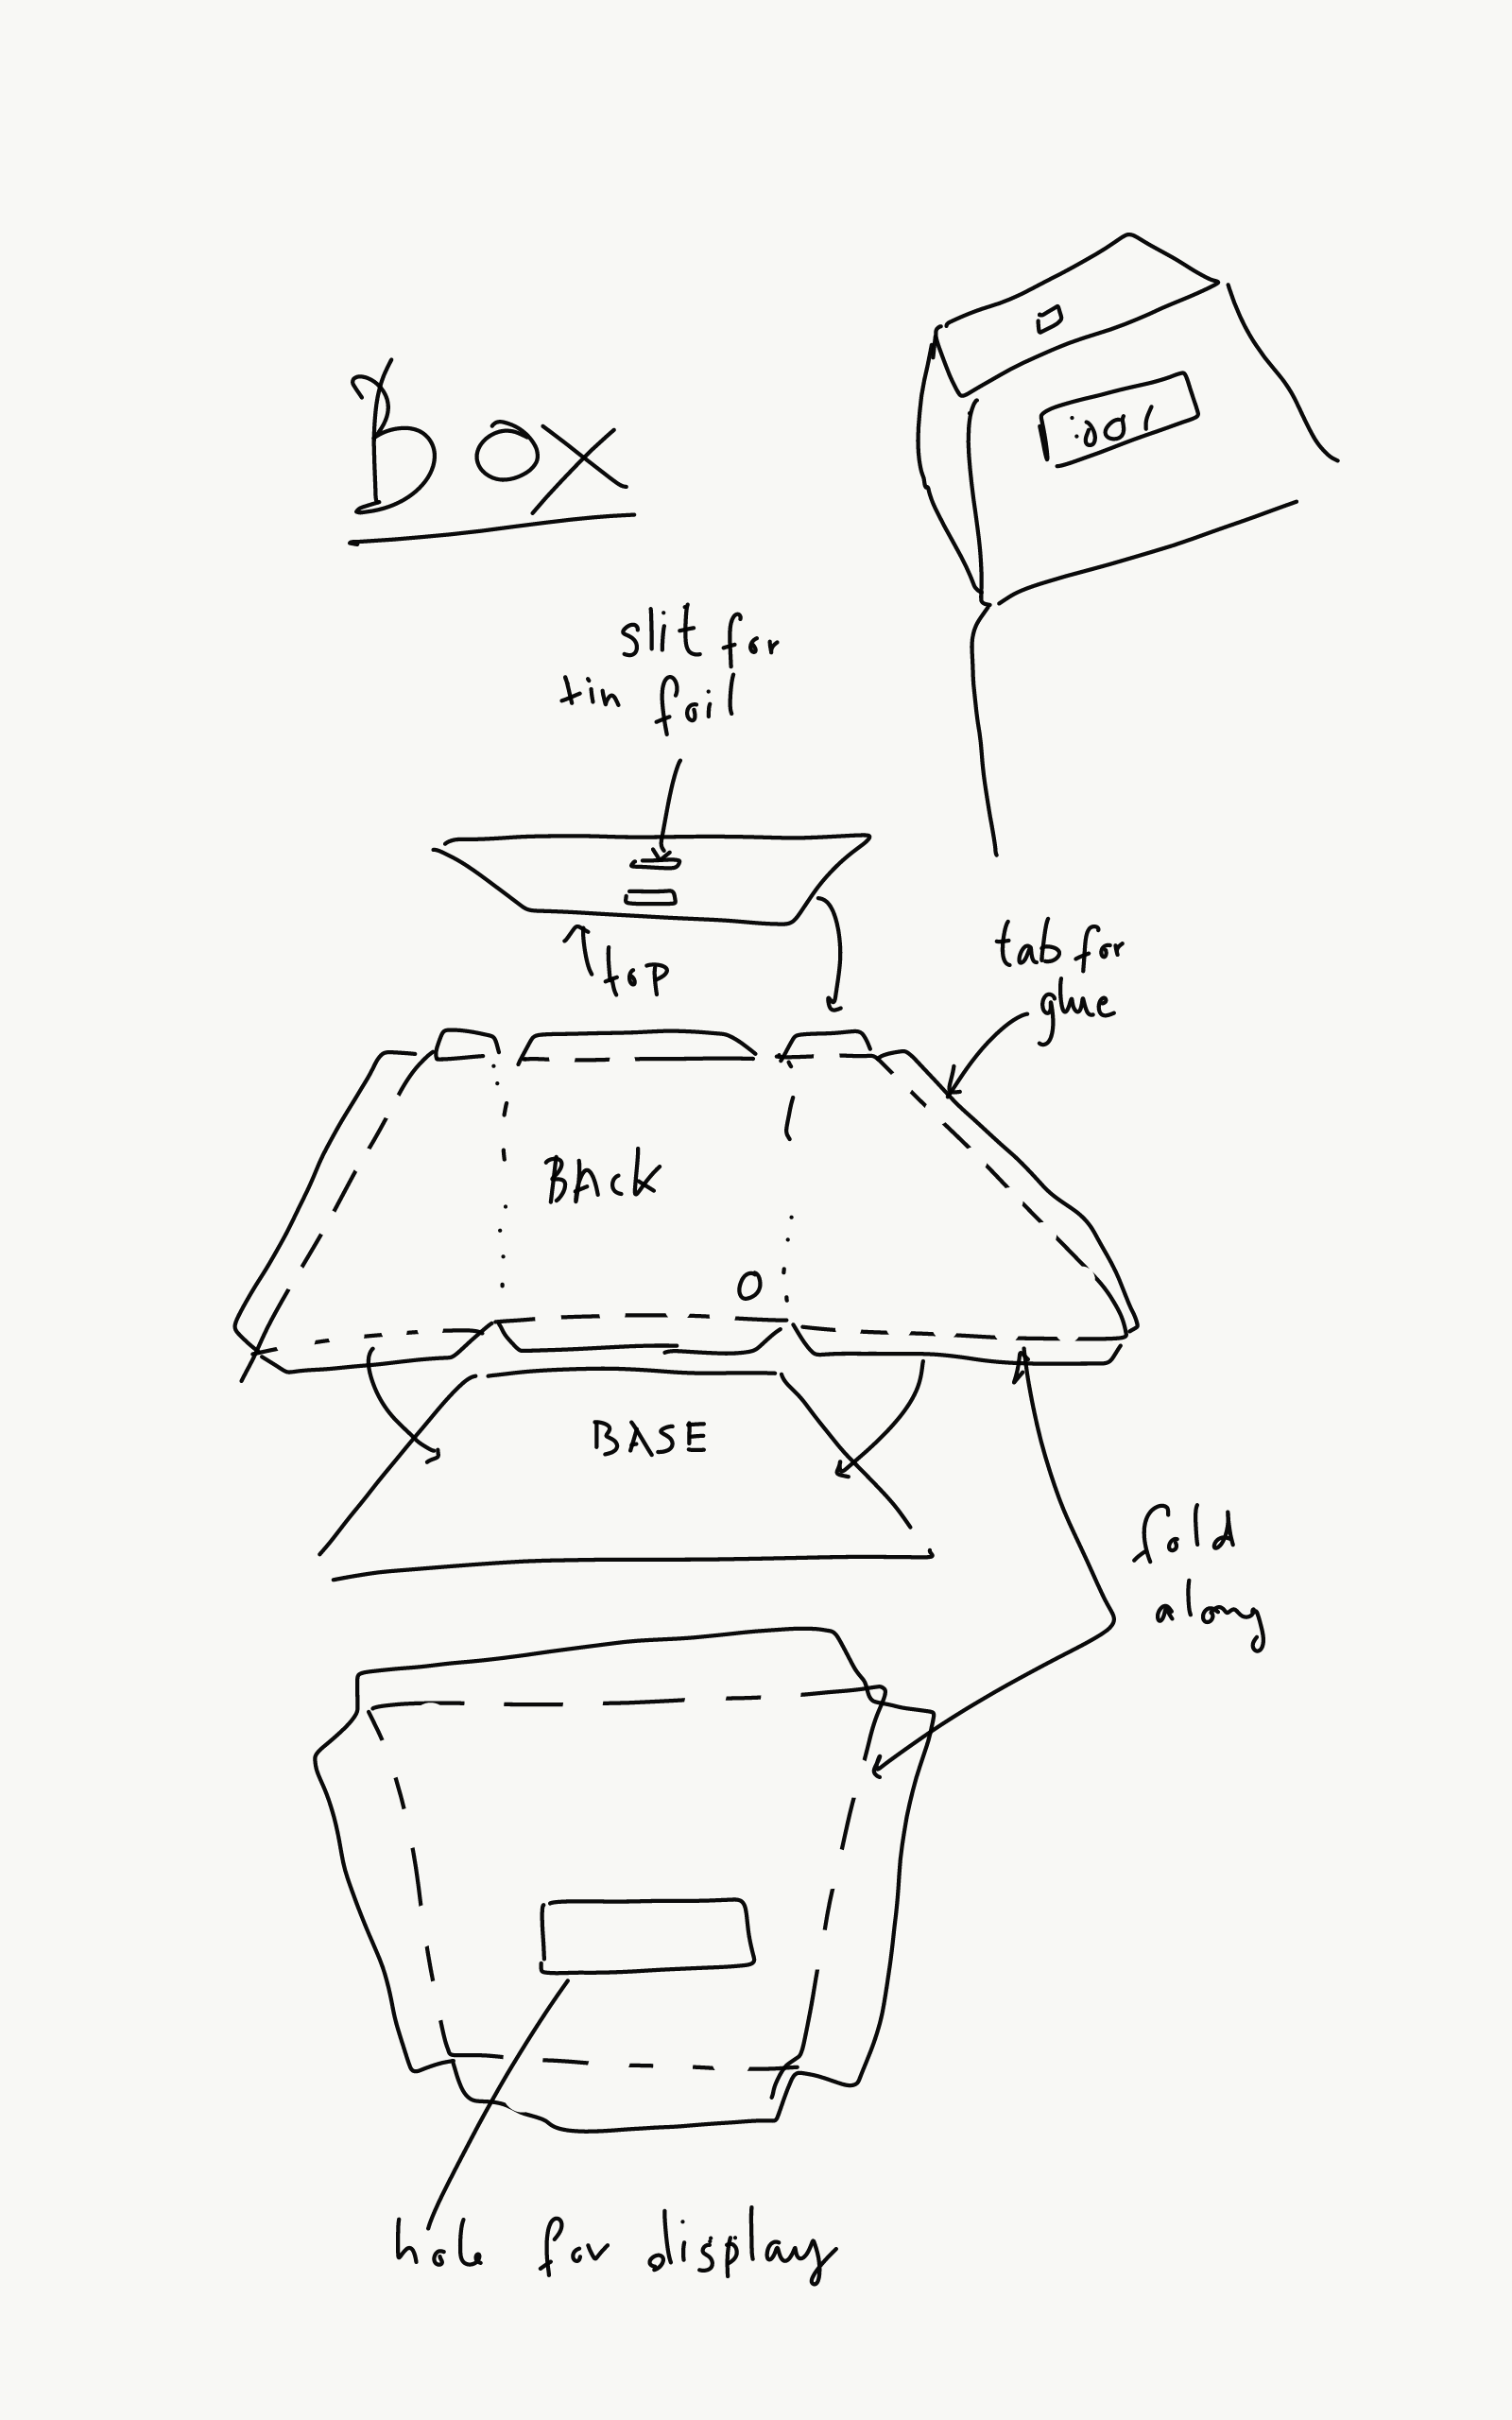 Box
slit for
tin foil
top
tab for
glue
BACK
BASE
fold
along
hole for display